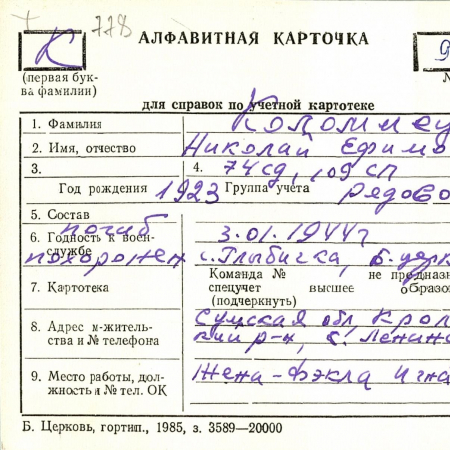 778
К
АЛФАВИТНАЯ КАРТОЧКА
9
(первая бук-
ва фамилии)
для справок по учетной картотеке
1. Фамилия Коломиец
2. Имя, отчество Николай Ефимо
3. 4. 74 сд, 109 сп
Год рождения 1923 Группа учета рядово
5. Состав
погиб 3.01.1944 г
6. Годность к воен-
службе
похоронен с. Глыбичка, Б. Церк
Команда № не предназн
7. Картотека спецучет высшее образо
(подчеркнуть)
8. Адрес м-житель-
ства и № телефона
Сумская обл. Крол
кий р-н, с. Ленинс
9. Место работы, дол-
жность и № тел. ОК
Жена - Фэкла Игна
Б. Церковь, гортип., 1985, з. 3589—20000